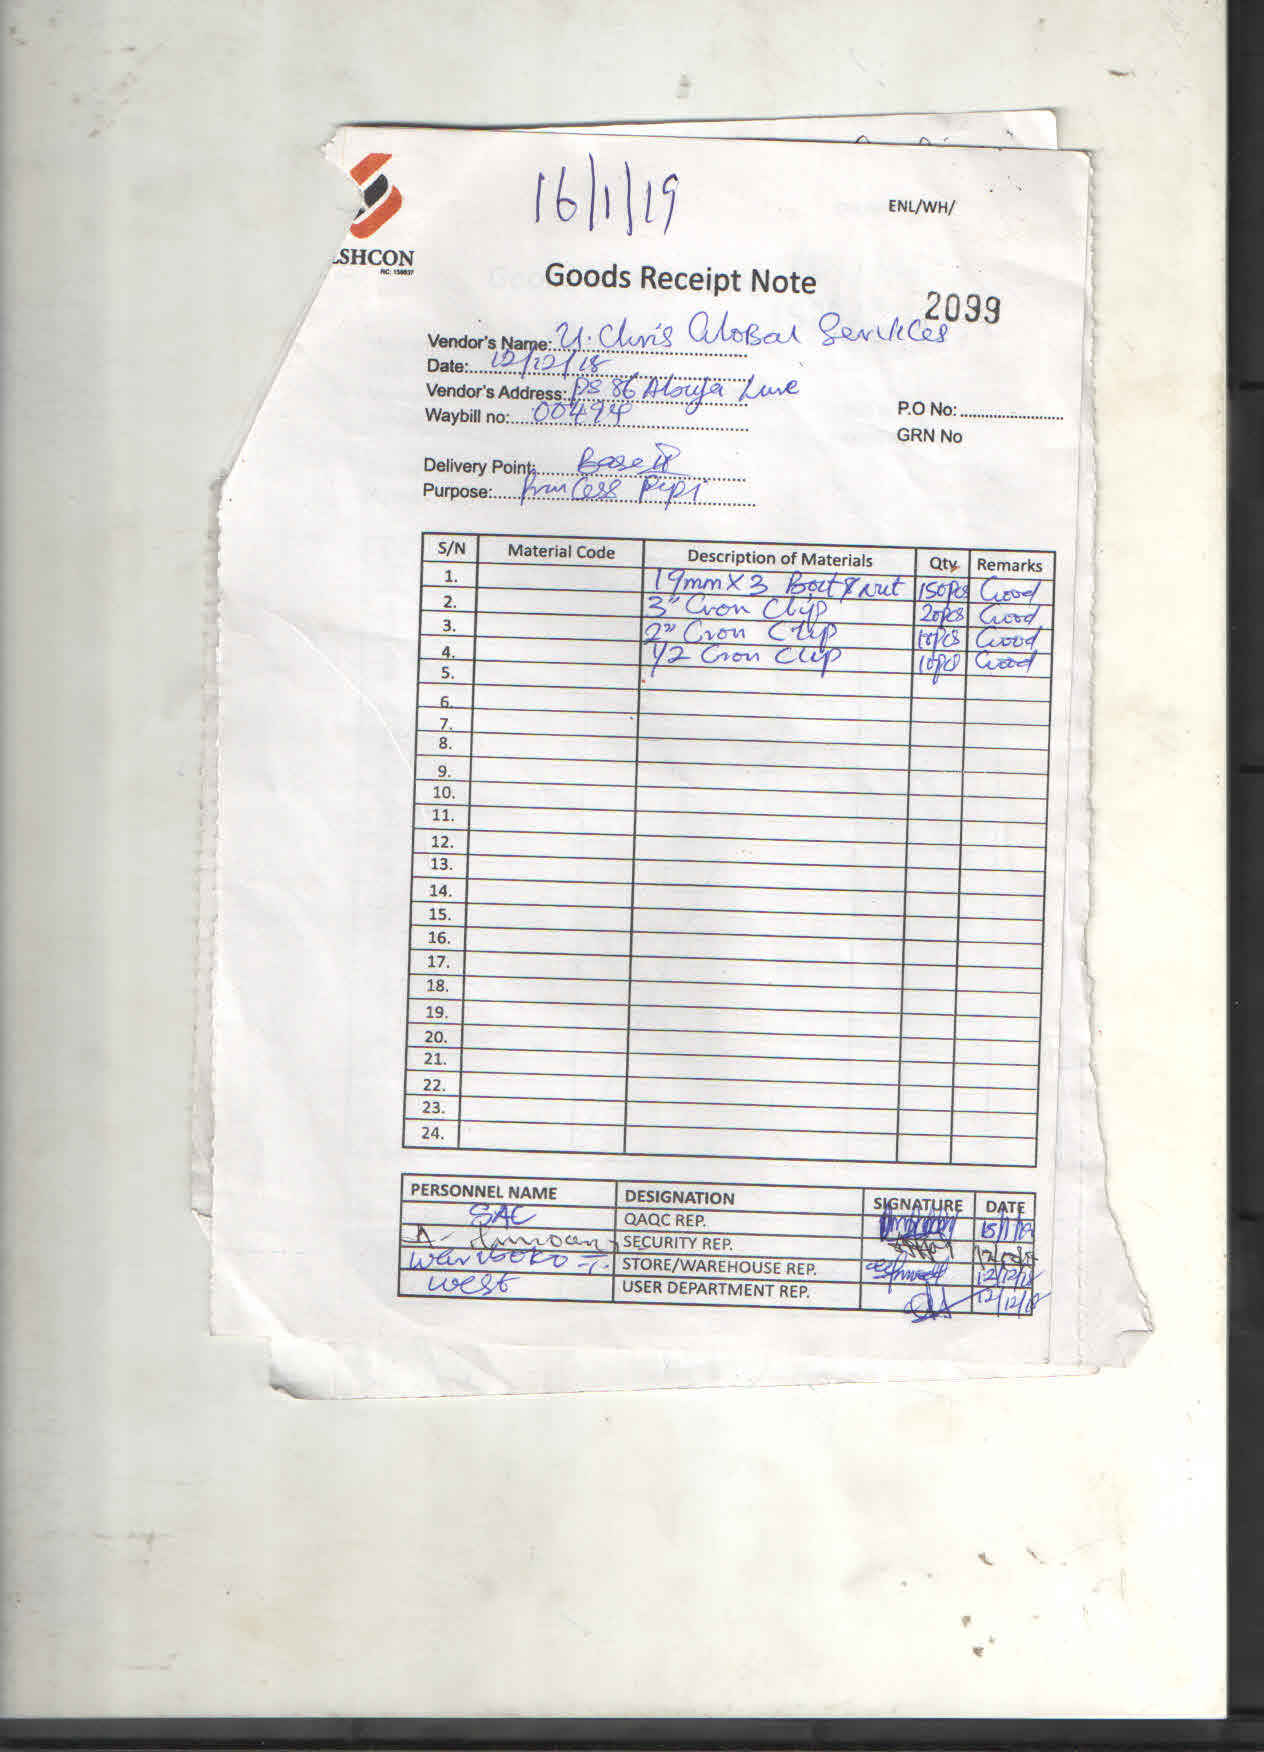 16/1/19
ENL/WH/
LSHCON
RC: 158837
Goods Receipt Note
2099
Vendor's Name: U. Chris Global Services
Date: 12/12/18
Vendor's Address: PS 86 Line
Waybill no: 00494
P.O No:
GRN No
Delivery Point: Base II
Purpose: Princess Pipi
S/N Material Code Description of Materials Qty Remarks
1. 19mm X 3 Bolt & Nut 150Pcs Good
2. 3" Cron Clip 20pcs Good
3. 2" Cron Clip 10pcs Good
4. 1/2 Cron Clip 10pcs Good
5.
6.
7.
8.
9.
10.
11.
12.
13.
14.
15.
16.
17.
18.
19.
20.
21.
22.
23.
24.
PERSONNEL NAME DESIGNATION SIGNATURE DATE
SAC QAQC REP. 15/1/19
A. SECURITY REP.
STORE/WAREHOUSE REP. 12/12/18
West USER DEPARTMENT REP. 12/12/18